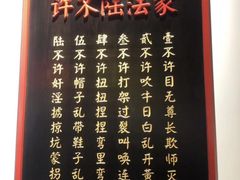 家法陆不许
壹不许目无尊长欺师灭
贰不许吹牛日白乱开黄
叁不许打架过裂叫唤连
肆不许扭扭捏捏弯里弯
伍不许帽子乱带鞋子乱
陆不许奸淫掳掠坑蒙拐